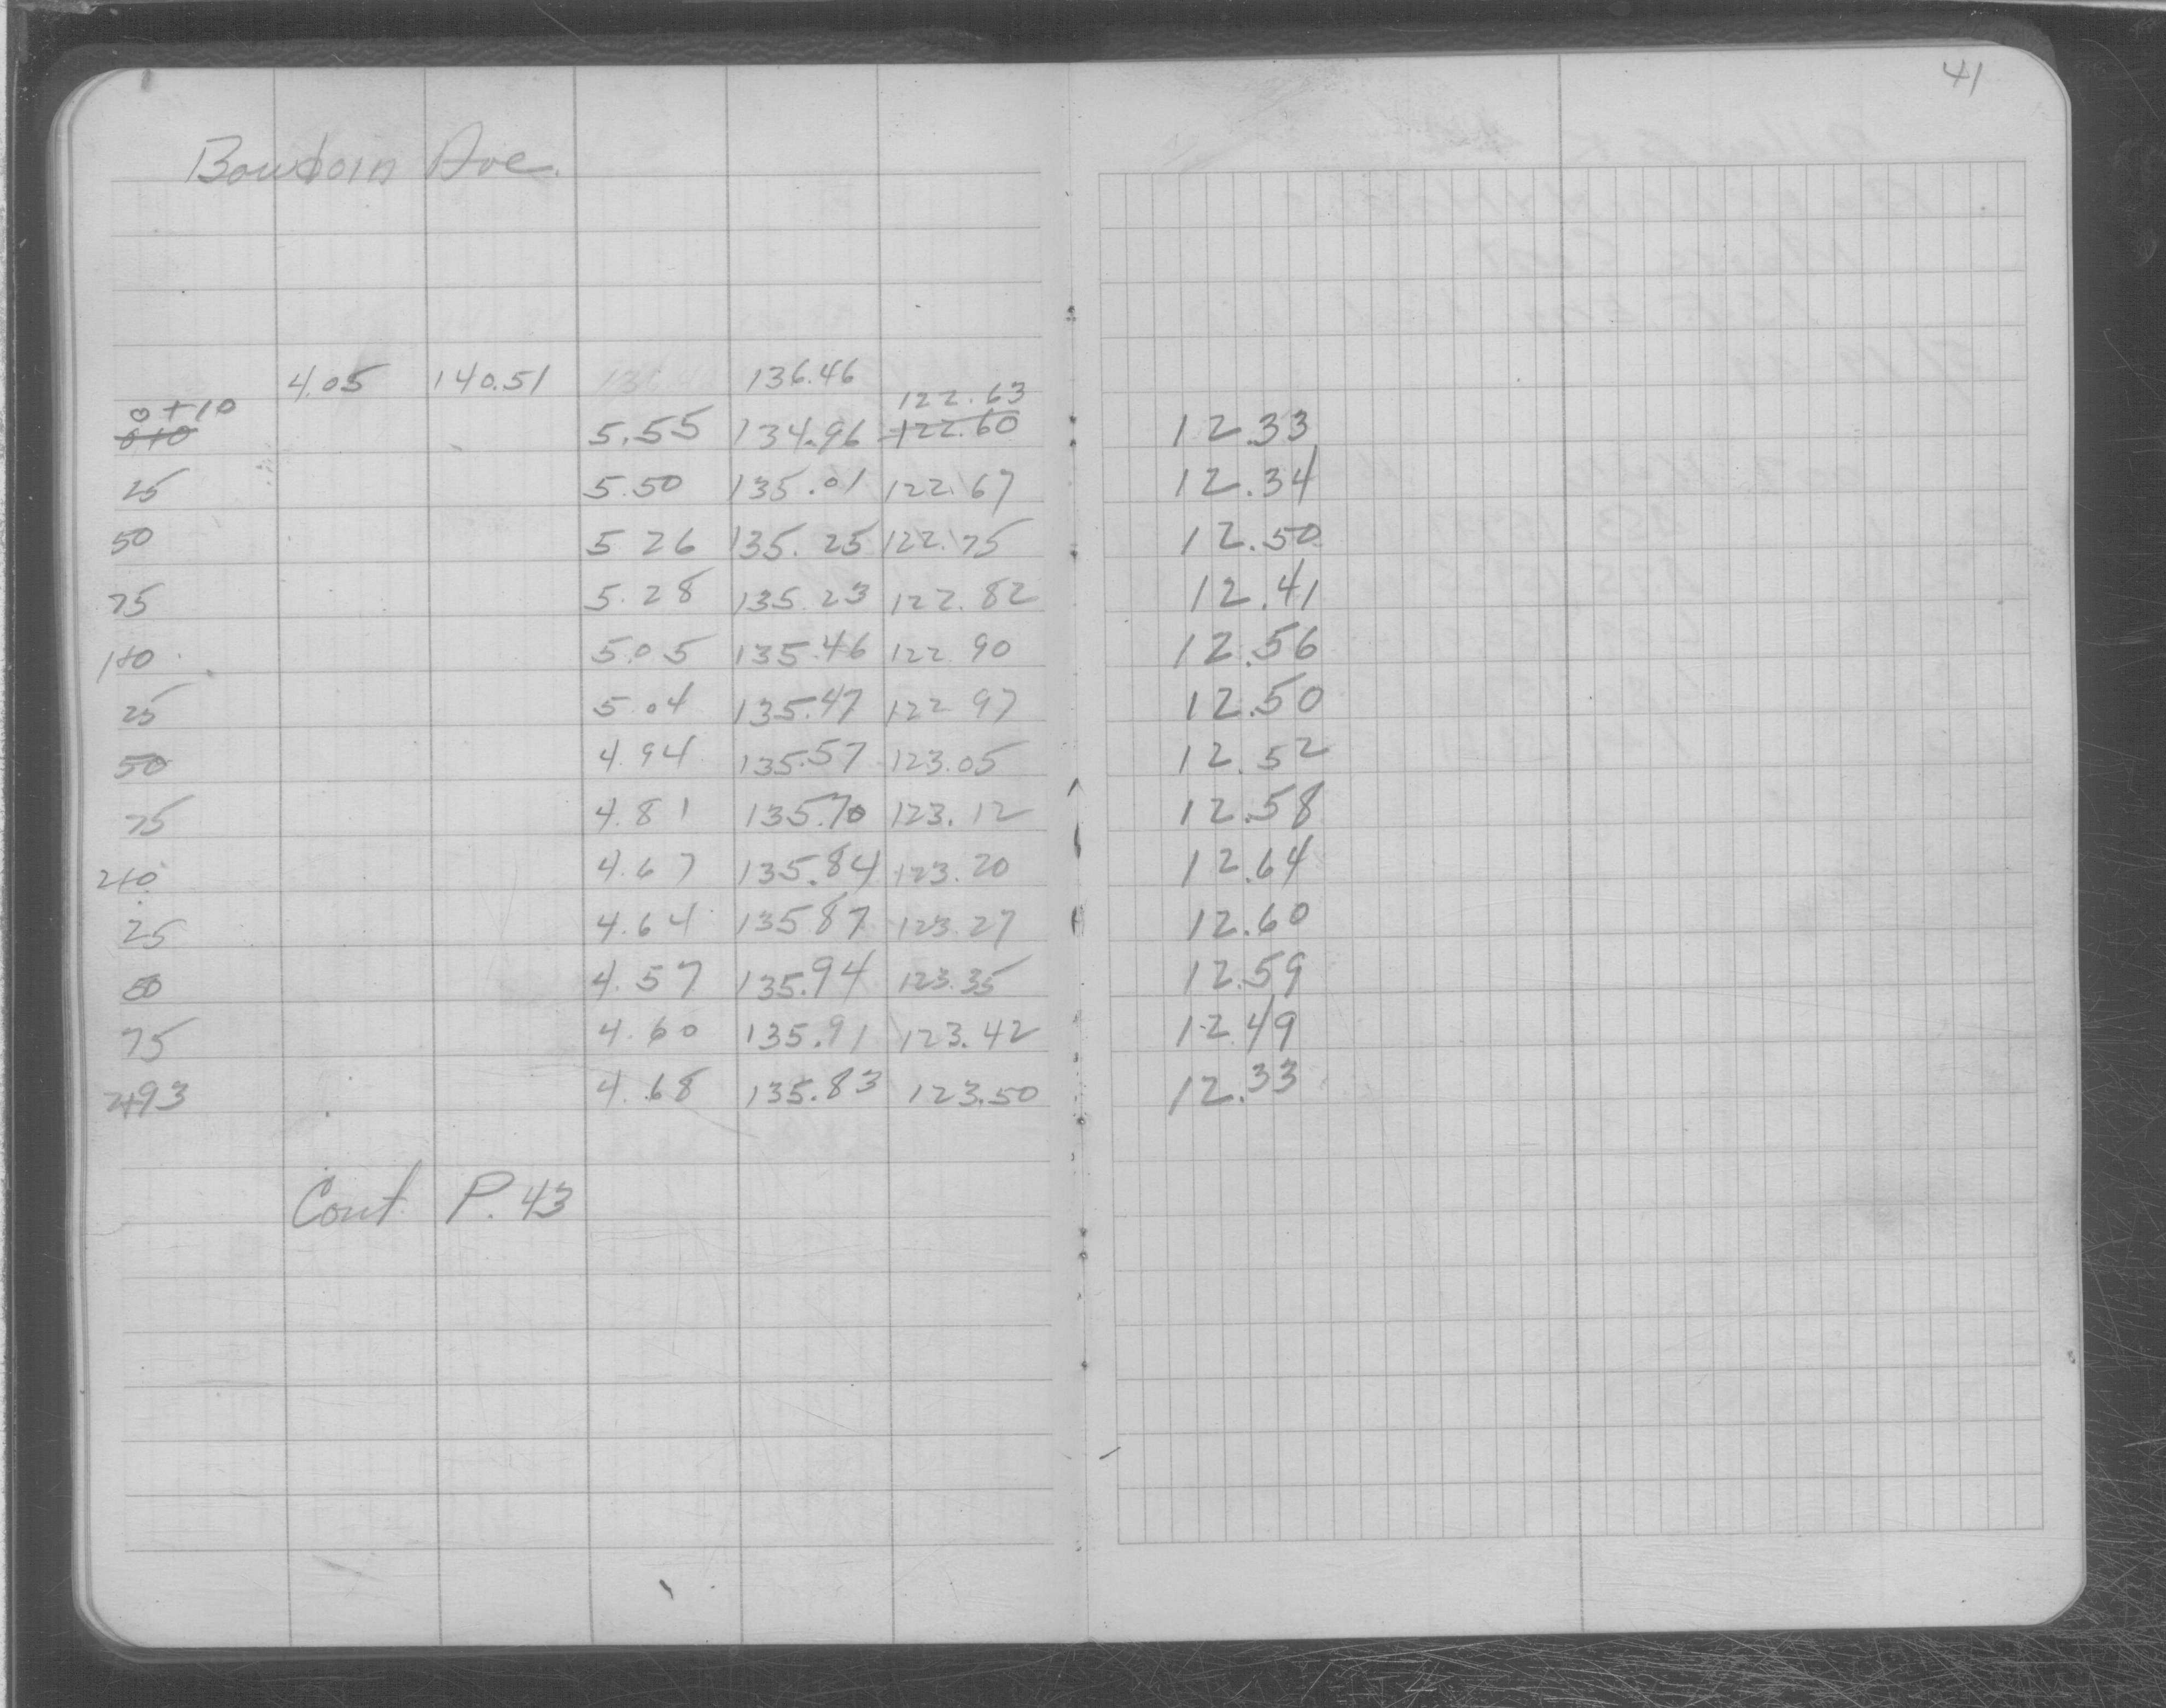 41
Bowdoin Ave.
4.05 140.51 136.46
0+10 122.63
0+0 5.55 134.96 122.60 12.33
25 5.50 135.01 122.67 12.34
50 5 26 135.25 122.75 12.50
75 5.28 135.23 122.82 12.41
1+0 5.05 135.46 122 90 12.56
25 5.04 135.47 122 97 12.50
50 4.94 135.57 123.05 12.52
75 4.81 135.70 123.12 12.58
2+0 4.67 135.84 123.20 12.64
25 4.64 135 87 123.27 12.60
50 4.57 135.94 123.35 12.59
75 4.60 135.91 123.42 12.49
2+93 4.68 135.83 123.50 12.33
Cont. P. 43